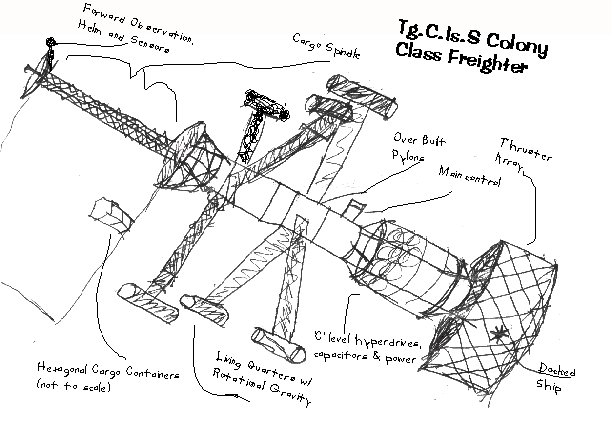 Tg.C.Is.S Colony
Class Freighter
Forward Observation,
Helm and Sensors
Cargo Spindle
Over Built
Pylons
Main control
Thruster
Array
Hexagonal Cargo Containers
(not to scale)
Living Quarters w/
Rotational Gravity
'C' level hyperdrives,
capacitors & power
Docked
Ship